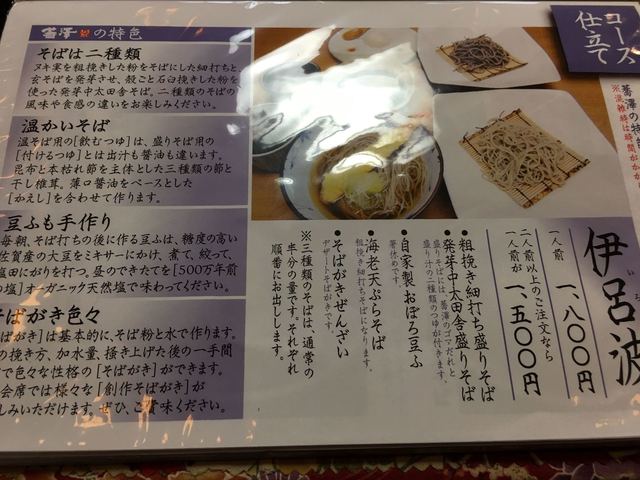 の特色
そばは二種類
ヌキ実を粗挽きした粉をそばにした細打ちと
玄そばを発芽させ、殻ごと石臼挽きした粉を
使った発芽中太田舎そば。二種類のそばの
風味や食感の違いをお楽しみください。
温かいそば
温そば用の[飲むつゆ]は、盛りそば用の
[付けるつゆ]とは出汁も醤油も違います。
昆布と本枯れ節を主体とした三種類の節と
干し椎茸。薄口醤油をベースとした
[かえし]を合わせて作ります。
豆ふも手作り
毎朝、そば打ちの後に作る豆ふは、糖度の高い
佐賀産の大豆をミキサーにかけ、煮て、絞って、
塩田にがりを打つ。昼のできたてを[500万年前
の塩]オーガニック天然塩で味わってください。
そばがき色々
がき]は基本的に、そば粉と水で作ります。
の挽き方、加水量、掻き上げた後の一手間
で色々な性格の[そばがき]ができます。
会席では様々な[創作そばがき]が
しみいただけます。ぜひ、ご賞味ください。
コース
仕立て
伊呂波
いろ
一人前 一、八〇〇円
二人前以上のご注文なら
一人前が 一、五〇〇円
●粗挽き細打ち盛りそば
●発芽中太田舎盛りそば
盛り汁の二種類のつゆが付きます。
●自家製おぼろ豆ふ
箸休めです。
●海老天ぷらそば
粗挽き細打ちそばになります。
●そばがきぜんざい
デザートそばがきです。
※三種類のそばは、通常の
半分の量です。それぞれ
順番にお出しします。